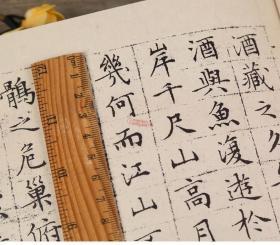 酒藏之久
酒與魚復遊於
岸千尺山高月
幾何而江山
鶻之危巢俯